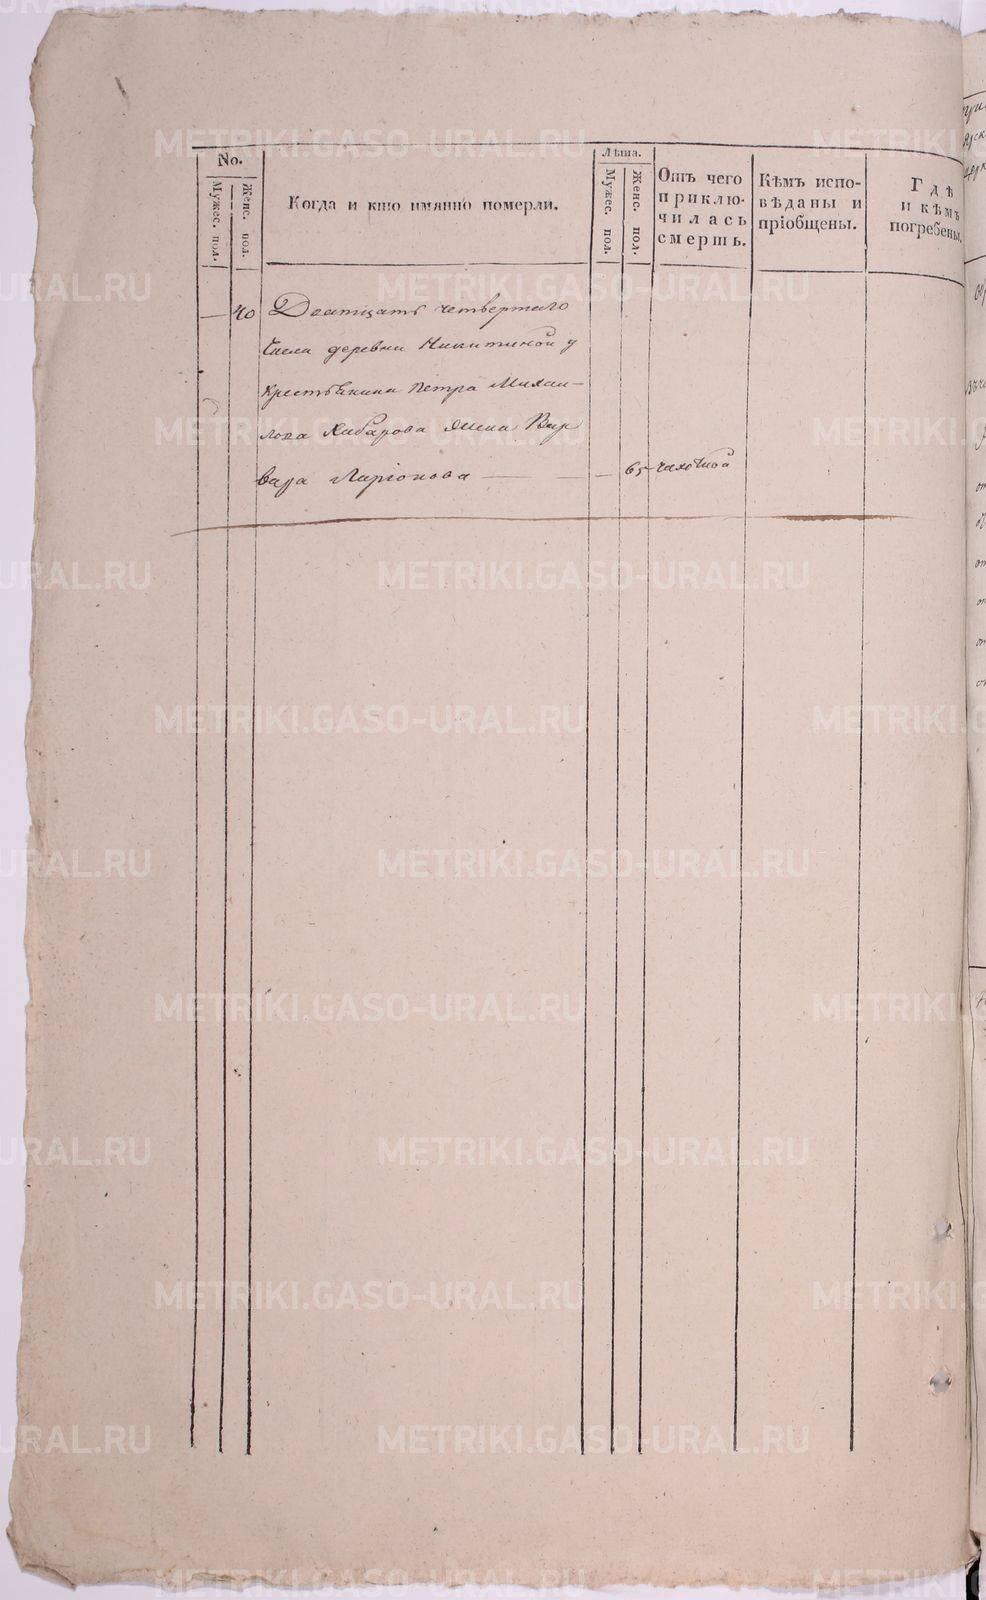 No.
Мужес. пол.
Женс. пол.
Когда и кто имянно померли.
Лѣта.
Мужес. пол.
Женс. пол.
Отъ чего
приклю-
чилась
смерть.
Кѣмъ испо-
вѣданы и
пріобщены.
Гдѣ
и кѣмъ
погребены.
— 40 Дватцать четвертаго
числа деревни Никитиной у
крестьянина Петра Михаи-
лова Хабарова жена Вар
вара Ларіонова — — — 65 чахоткой
METRIKI.GASO-URAL.RU